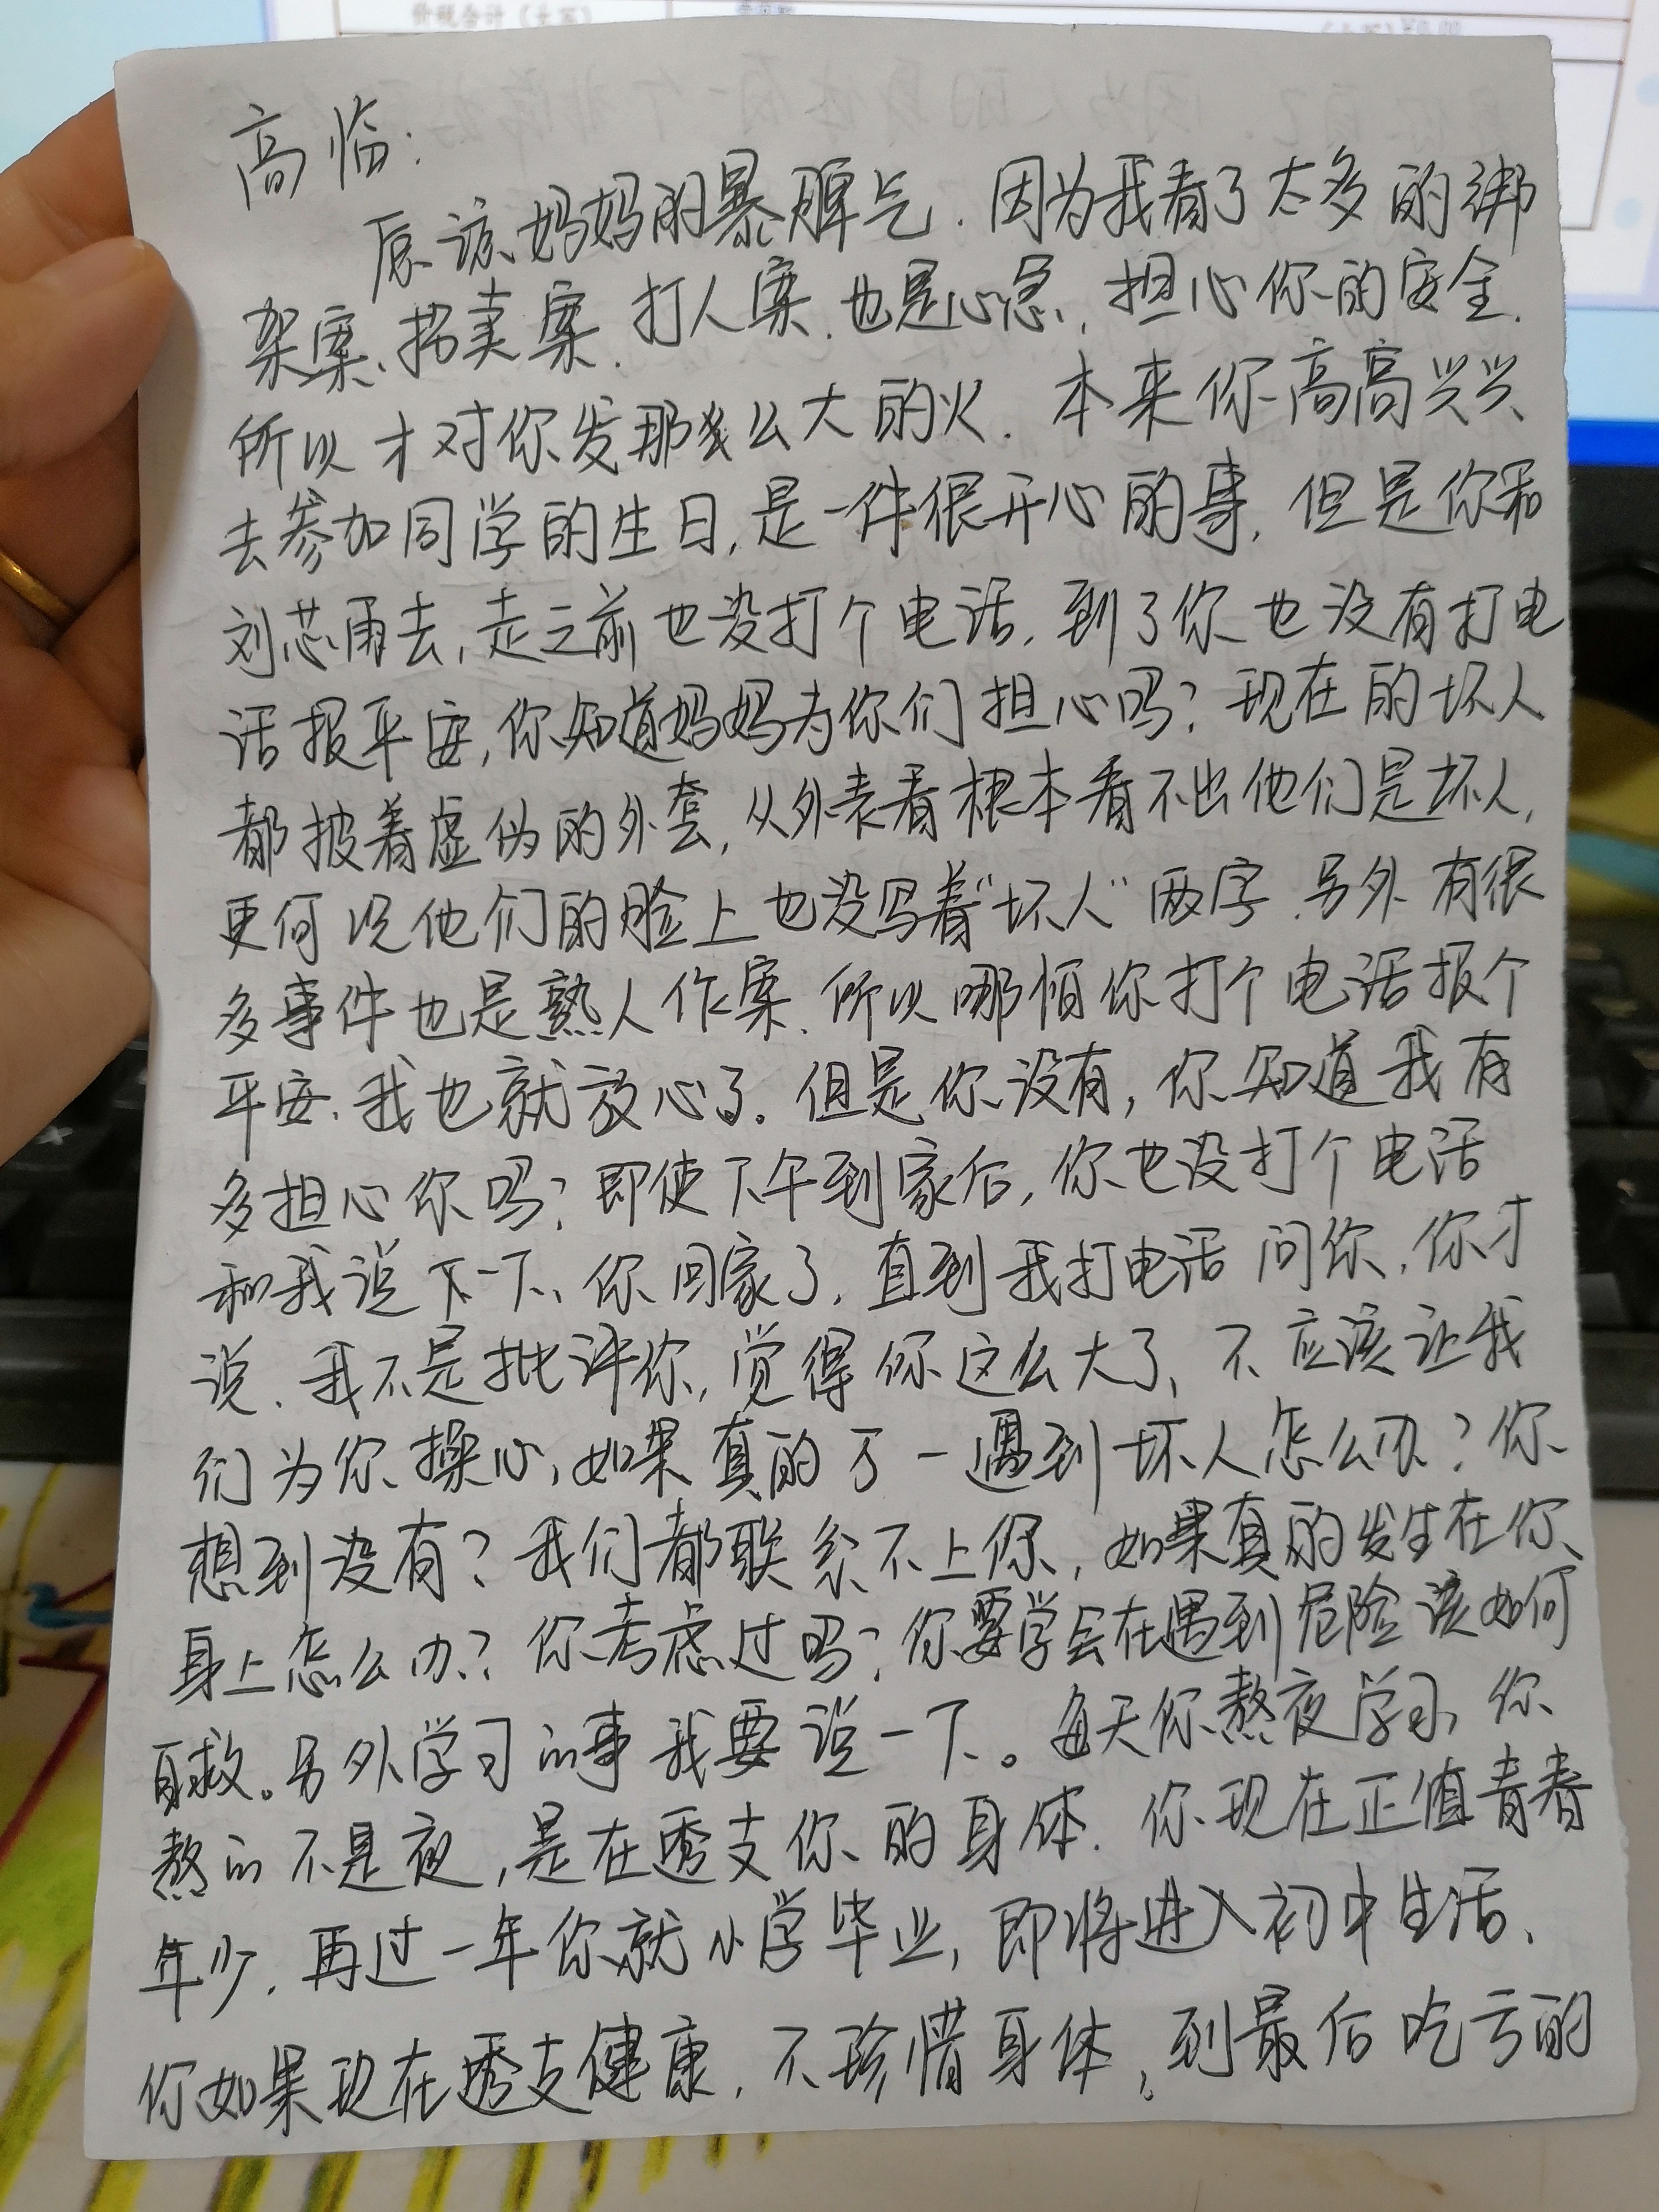 价税合计（大写）
高临：
原谅妈妈的暴脾气.因为我看了太多的绑
架案、拐卖案.打人案.也是心急,担心你的安全.
所以才对你发那么大的火.本来你高高兴兴
去参加同学的生日,是一件很开心的事,但是你和
刘芯雨去,走之前也没打个电话,到了你也没有打电
话报平安,你知道妈妈为你们担心吗?现在的坏人
都披着虚伪的外套,从外表看根本看不出他们是坏人,
更何况他们的脸上也没写着"坏人"两字.另外有很
多事件也是熟人作案.所以哪怕你打个电话报个
平安、我也就放心了.但是你没有,你知道我有
多担心你吗?即使下午到家后,你也没打个电话
和我说下一下、你回家了,直到我打电话问你,你才
说.我不是批评你,觉得你这么大了、不应该让我
们为你操心,如果真的万一遇到坏人怎么办?你
想到没有?我们都联系不上你,如果真的发生在你
身上怎么办?你考虑过吗?你要学会在遇到危险该如何
自救。另外学习的事我要说一下。每天你熬夜学习,你
熬的不是夜,是在透支你的身体.你现在正值青春
年少.再过一年你就小学毕业,即将进入初中生活、
你如果现在透支健康,不珍惜身体,到最后吃亏的